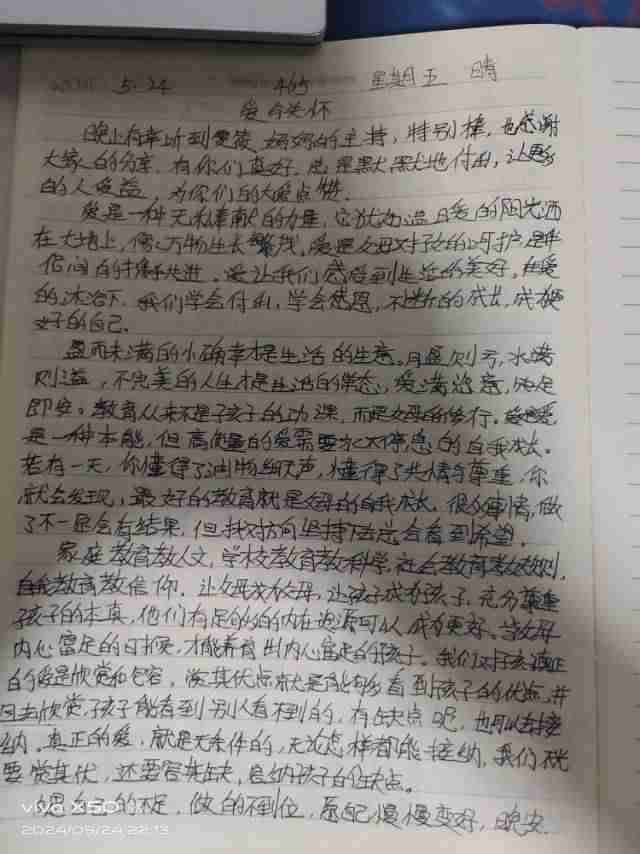 5.24 465 星期五 晴
爱与关怀
晚上有幸听到爱筱妈妈的主持,特别棒,也感谢
大家的分享,有你们真好,总是默默地付出,让更多
的人受益,为你们的大爱点赞.
爱是一种无私奉献的力量,它犹如温暖的阳光洒
在大地上,使万物生长繁茂,爱是父母对子女的呵护,是伴
侣间的携手共进.爱让我们感受到生活的美好,在爱
的沐浴下,我们学会付出,学会感恩,不断的成长,成为更
好的自己.
盈而未满的小确幸才是生活的生意.月盈则亏,水满
则溢,不完美的人生才是生活的常态,爱满治意,满足
即安。教育从来不是子孩子的功课,而是父母的修行.爱
是一种本能,但高质量的爱需要永不停息的自我成长.
若有一天,你懂得了润物细无声,懂得了共情与尊重,你
就会发现,最好的教育就是父母的自我成长.很多事情,做
了不一定会有结果,但找对方向坚持下去总会看到希望.
家庭教育教人文,学校教育教科学,社会教育教规则,
自我教育教信仰.让父母成为父母,让孩子成为孩子,充分尊重
孩子的本真,他们有足够的内在资源可以成为更好.当父母
内心富足的时候,才能养育出内心富足的孩子。我们对孩子真正
的爱是欣赏和包容,觉其优点就是能够看到孩子的优点,并
且去欣赏,孩子能看到别人看不到的,有缺点呢,也可以去接
纳.真正的爱,就是无条件的,无论怎样都能接纳,我们既
要觉其优,还要容其缺,包纳孩子的缺点。
的不足,做的不到位,愿自己慢慢变好,晚安.
vivo X50
2024/05/24 22:13